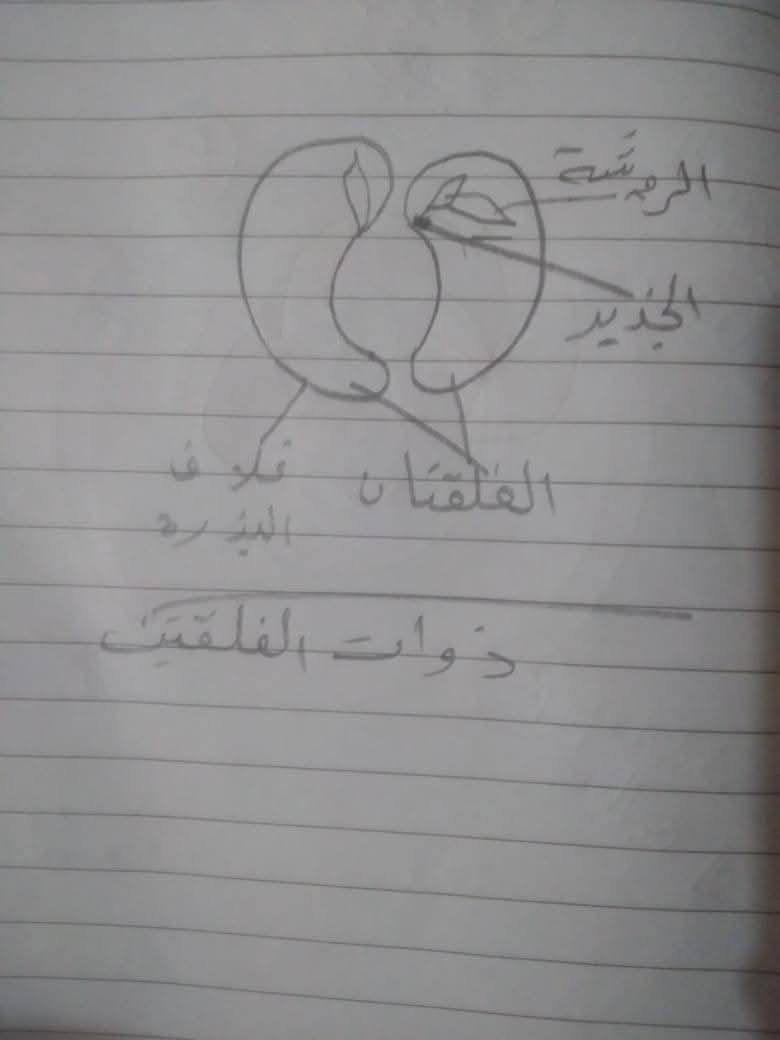 الرويشة
الجذير
الفلقتان
غلاف
البذرة
ذوات الفلقتين